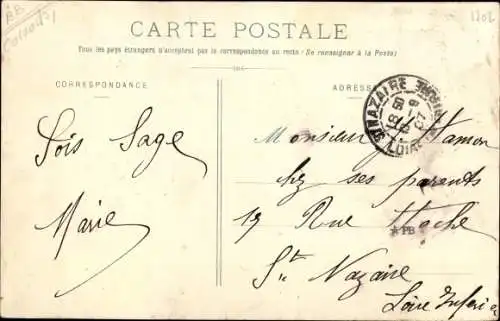 BB
CARTE POSTALE
Tous les pays étrangers n'acceptent pas la correspondance au recto (Se renseigner à la Poste)
CORRESPONDANCE
ADRESSE
Sois Sage
Marie
ST NAZAIRE
LOIRE
Monsieur Hamon
chez ses parents
19 Rue Hoche
PB
St Nazaire
Loire Inferi